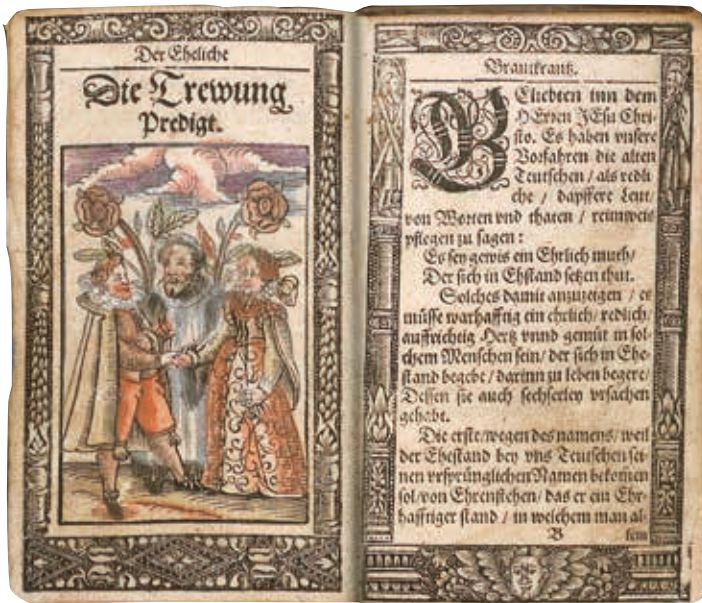 Der Eheliche
Die Trewung
Predigt.
Brautkrantz.
BEliebten inn dem
HErren JEsu Chri-
sto. Es haben vnsere
Vorfahren die alten
Teutschen / als redli
che / dapffere Leut/
von Worten vnd thaten / reimweis
pflegen zu sagen :
Es sey gewis ein Ehrlich muth/
Der sich in Ehstand setzen thut.
Solches damit anzuzeigen / es
müsse warhafftig ein ehrlich/ redlich/
auffrichtig Hertz vnnd gemüt in sol-
chem Menschen sein/ der sich in Ehe-
stand begebe / darinn zu leben begere/
Dessen sie auch sechserley vrsachen
gehabt.
Die erste/wegen des namens/ weil
der Ehestand bey vns Teutschen sei-
nen vrsprünglichen Namen bekomen
sol/von Ehrenstehen/ das er ein Ehr-
hafftiger stand / in welchem man al-
B